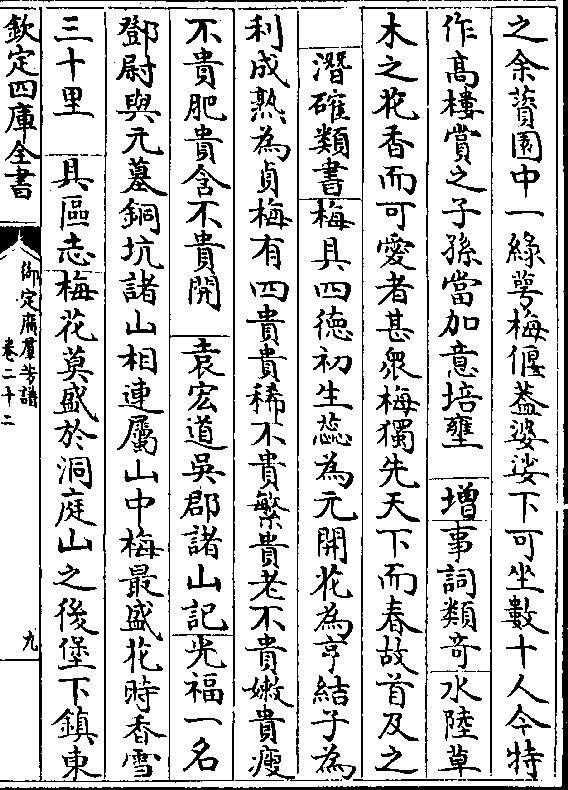 之余薋園中一綠萼梅偃葢婆娑下可坐數十人今特
作高樓賞之子孫當加意培壅　增事詞類竒水陸草
木之花香而可愛者甚衆梅獨先天下而春故首及之
潛確類書梅具四德初生蘂為元開花為亨結子為
利成熟為貞梅有四貴貴稀不貴繁貴老不貴嫩貴瘦
不貴肥貴含不貴開　袁宏道吳郡諸山記光福一名
鄧尉與元墓銅坑諸山相連屬山中梅最盛花時香雪
三十里　具區志梅花莫盛於洞庭山之後堡下鎮東
欽定四庫全書
御定廣羣芳譜
卷二十二
九